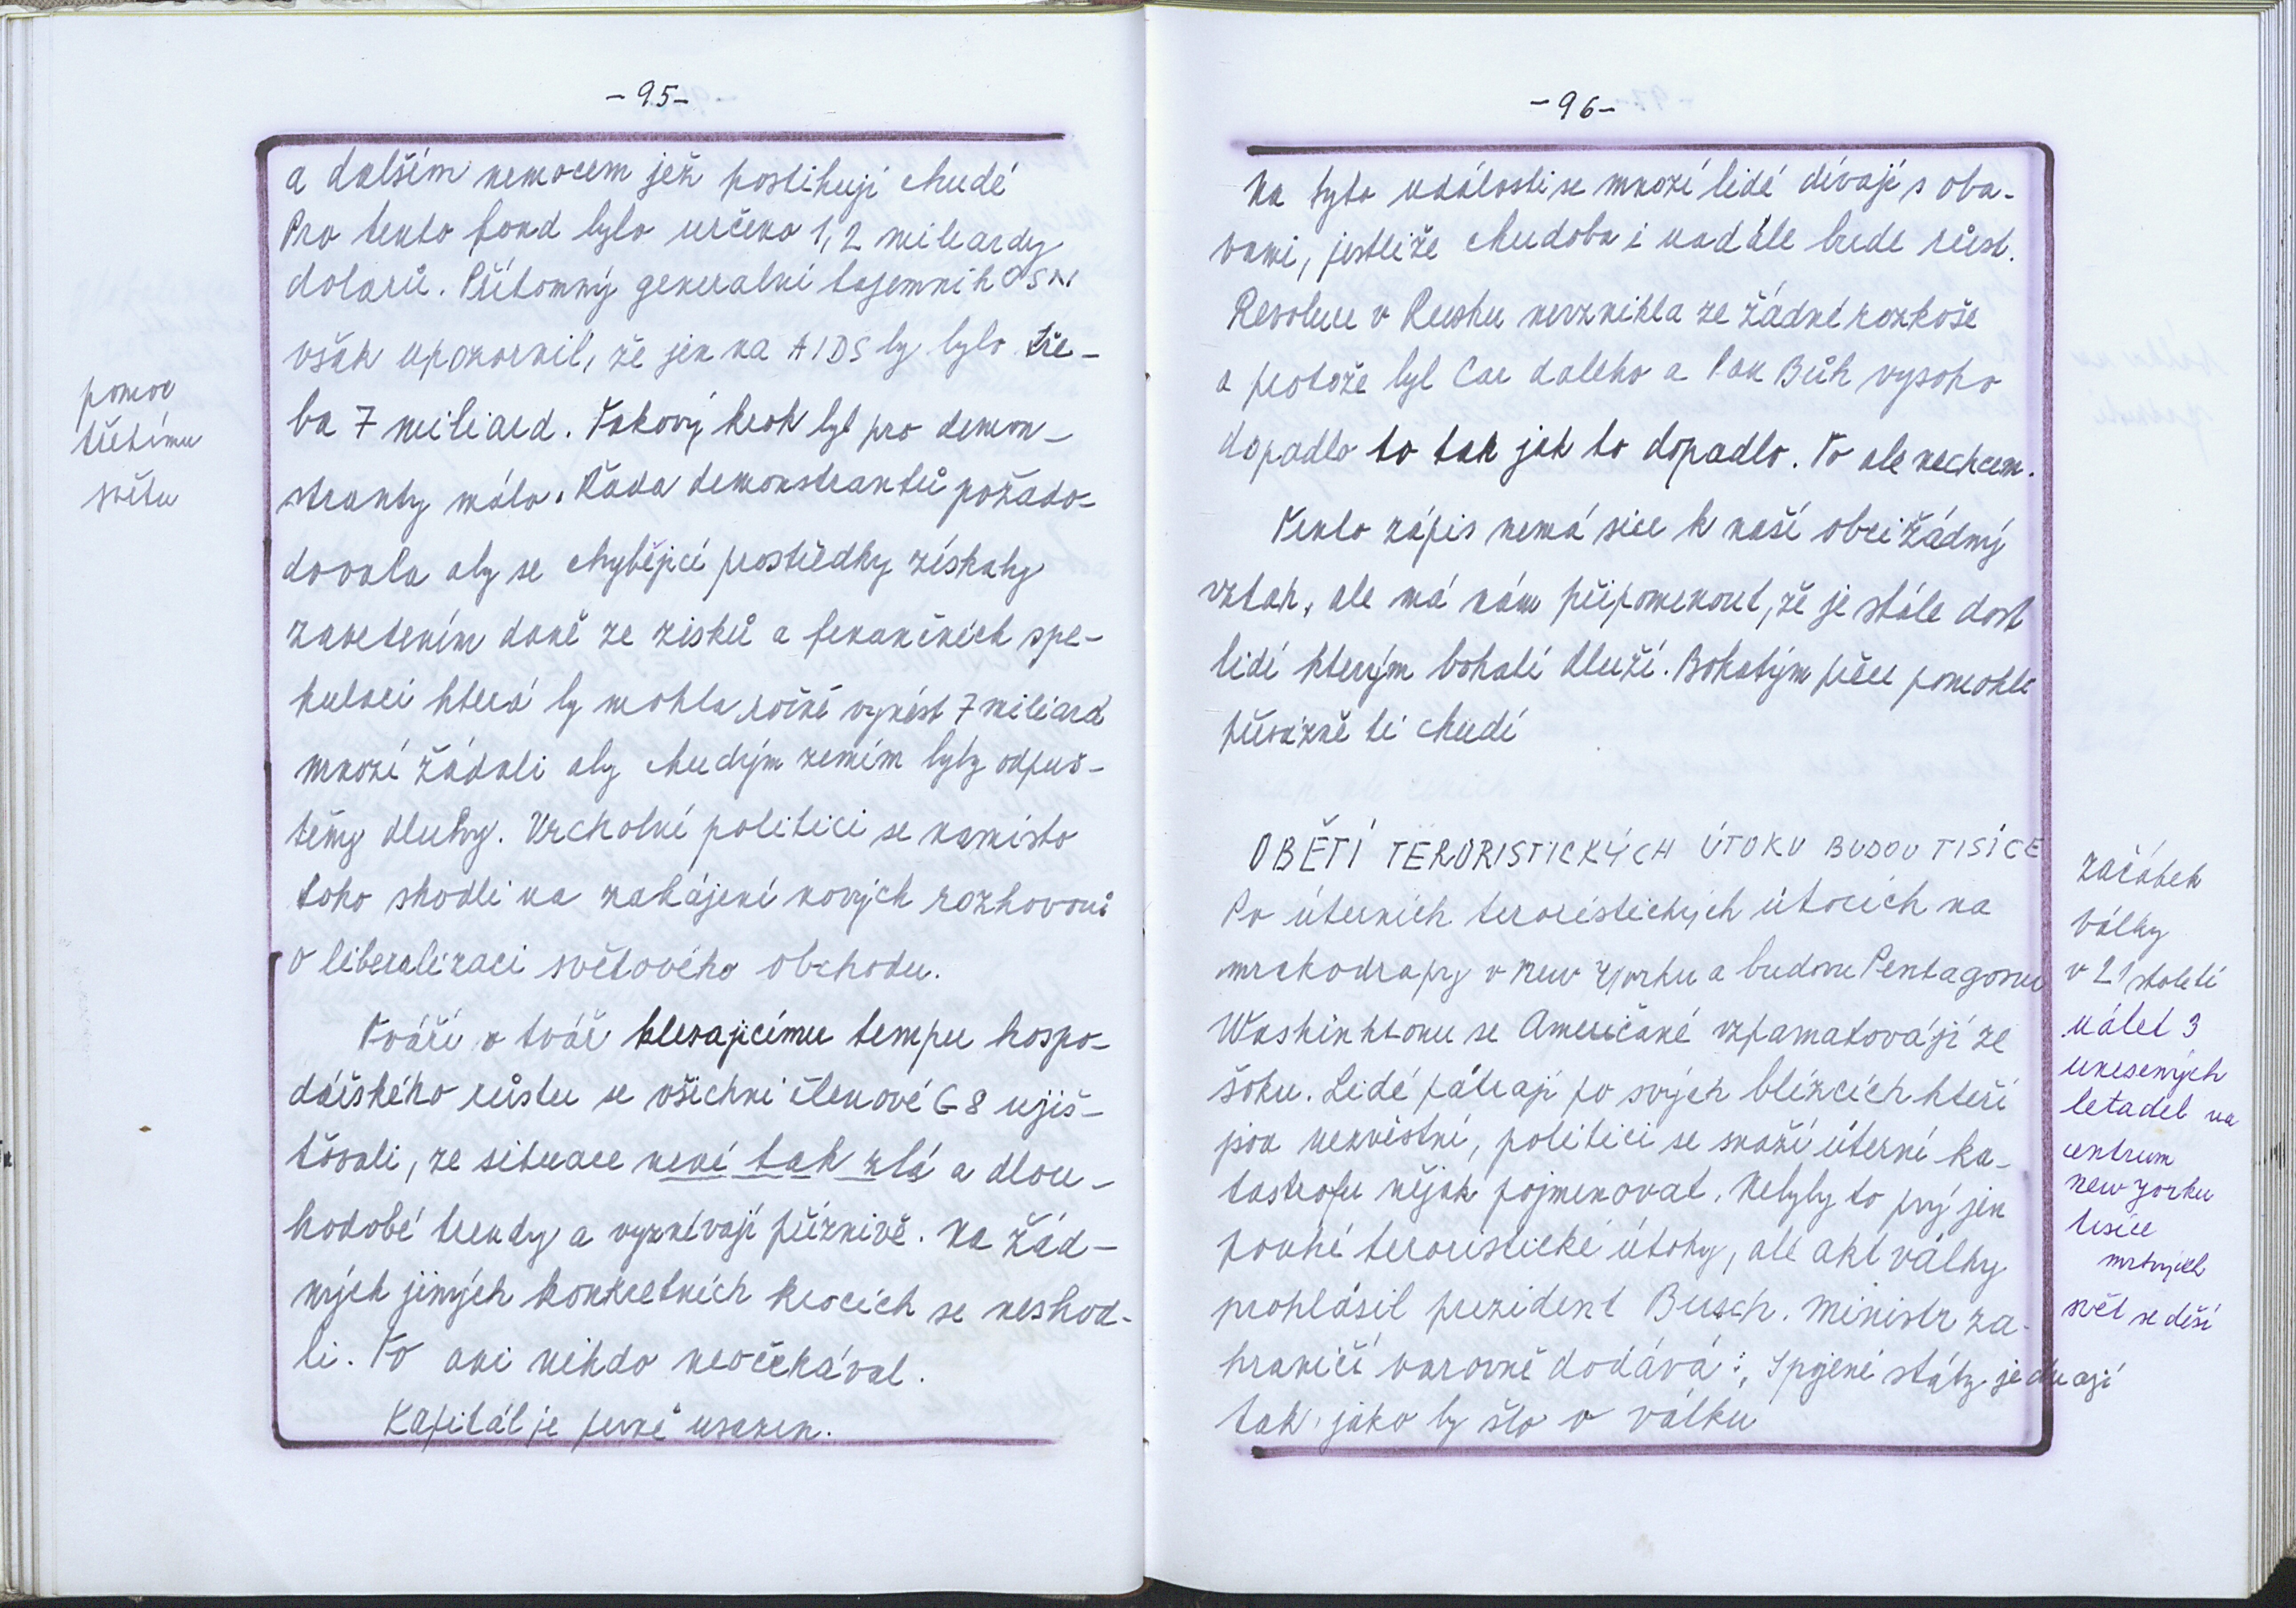 -95-
a dalším nemocem jež postihují chudé
Pro tento fond bylo určeno 1,2 miliardy
dolarů. Přítomný generalní tajemník OSN
však upozornil, že jen na AIDS by bylo tře-
ba 7 miliard. Takový krok byl pro demon-
stranty málo. Řada demonstrantů požado-
dovala aby se chybějící prostředky získaly
zavedením daně ze zisků a finančních spe-
kulací která by mohla ročně vynést 7 miliard
mnozí žádali aby chudým zemím byly odpuš-
těny dluhy. Vrcholní politici se namísto
toho shodli na zahájení nových rozhovorů
o liberalizaci světového obchodu.
Tváří v tvář klesajícímu tempu hospo-
dářského růstu se všichni členové G8 ujiš-
ťovali, ze situace není tak zlá a dlou-
hodobé trendy a vyznívají příznivě. Na žád-
ných jiných konkretních krocích se neshod-
li. To ani nikdo neočekával.
Kapitál je pevně usazen.
pomoc
třetímu
světu
-96-
Na tyto události se mnozí lidé dívají s oba-
vami, jestliže chudoba i nadále bude růst.
Revoluce v Rusku nevznikla ze žádné rozkoše
a protože byl Car daleko a Pan Bůh vysoko
dopadlo to tak jak to dopadlo. To ale nechcem.
Tento zápis nemá sice k naší obci žádný
vztah, ale má nám připomenout, že je stále dost
lidí kterým bohatí dluží. Bohatým přece pomohli
převážně ti chudí
OBĚTÍ TERORISTICKÝCH ÚTOKU BUDOU TISÍCE
Po úterních teroristických útocích na
mrakodrapy v New Yorku a budovu Pentagonu
Washinktonu se Američané vzpamatovájí ze
šoku. Lidé pátrají po svých blízcích kteří
jsou nezvěstní, politici se snaží úterní ka-
tastrofu nějak pojmenovat. Nebyly to prý jen
pouhé teroristické útoky, ale akt války
prohlásil prezident Busch. Ministr za-
hraničí varovně dodává:, Spojené státy jednají
tak, jako by šlo o válku
začátek
války
v 21 století
nálet 3
unesených
letadel na
centrum
New yorku
tisíce
mrtvých
svět se děsí